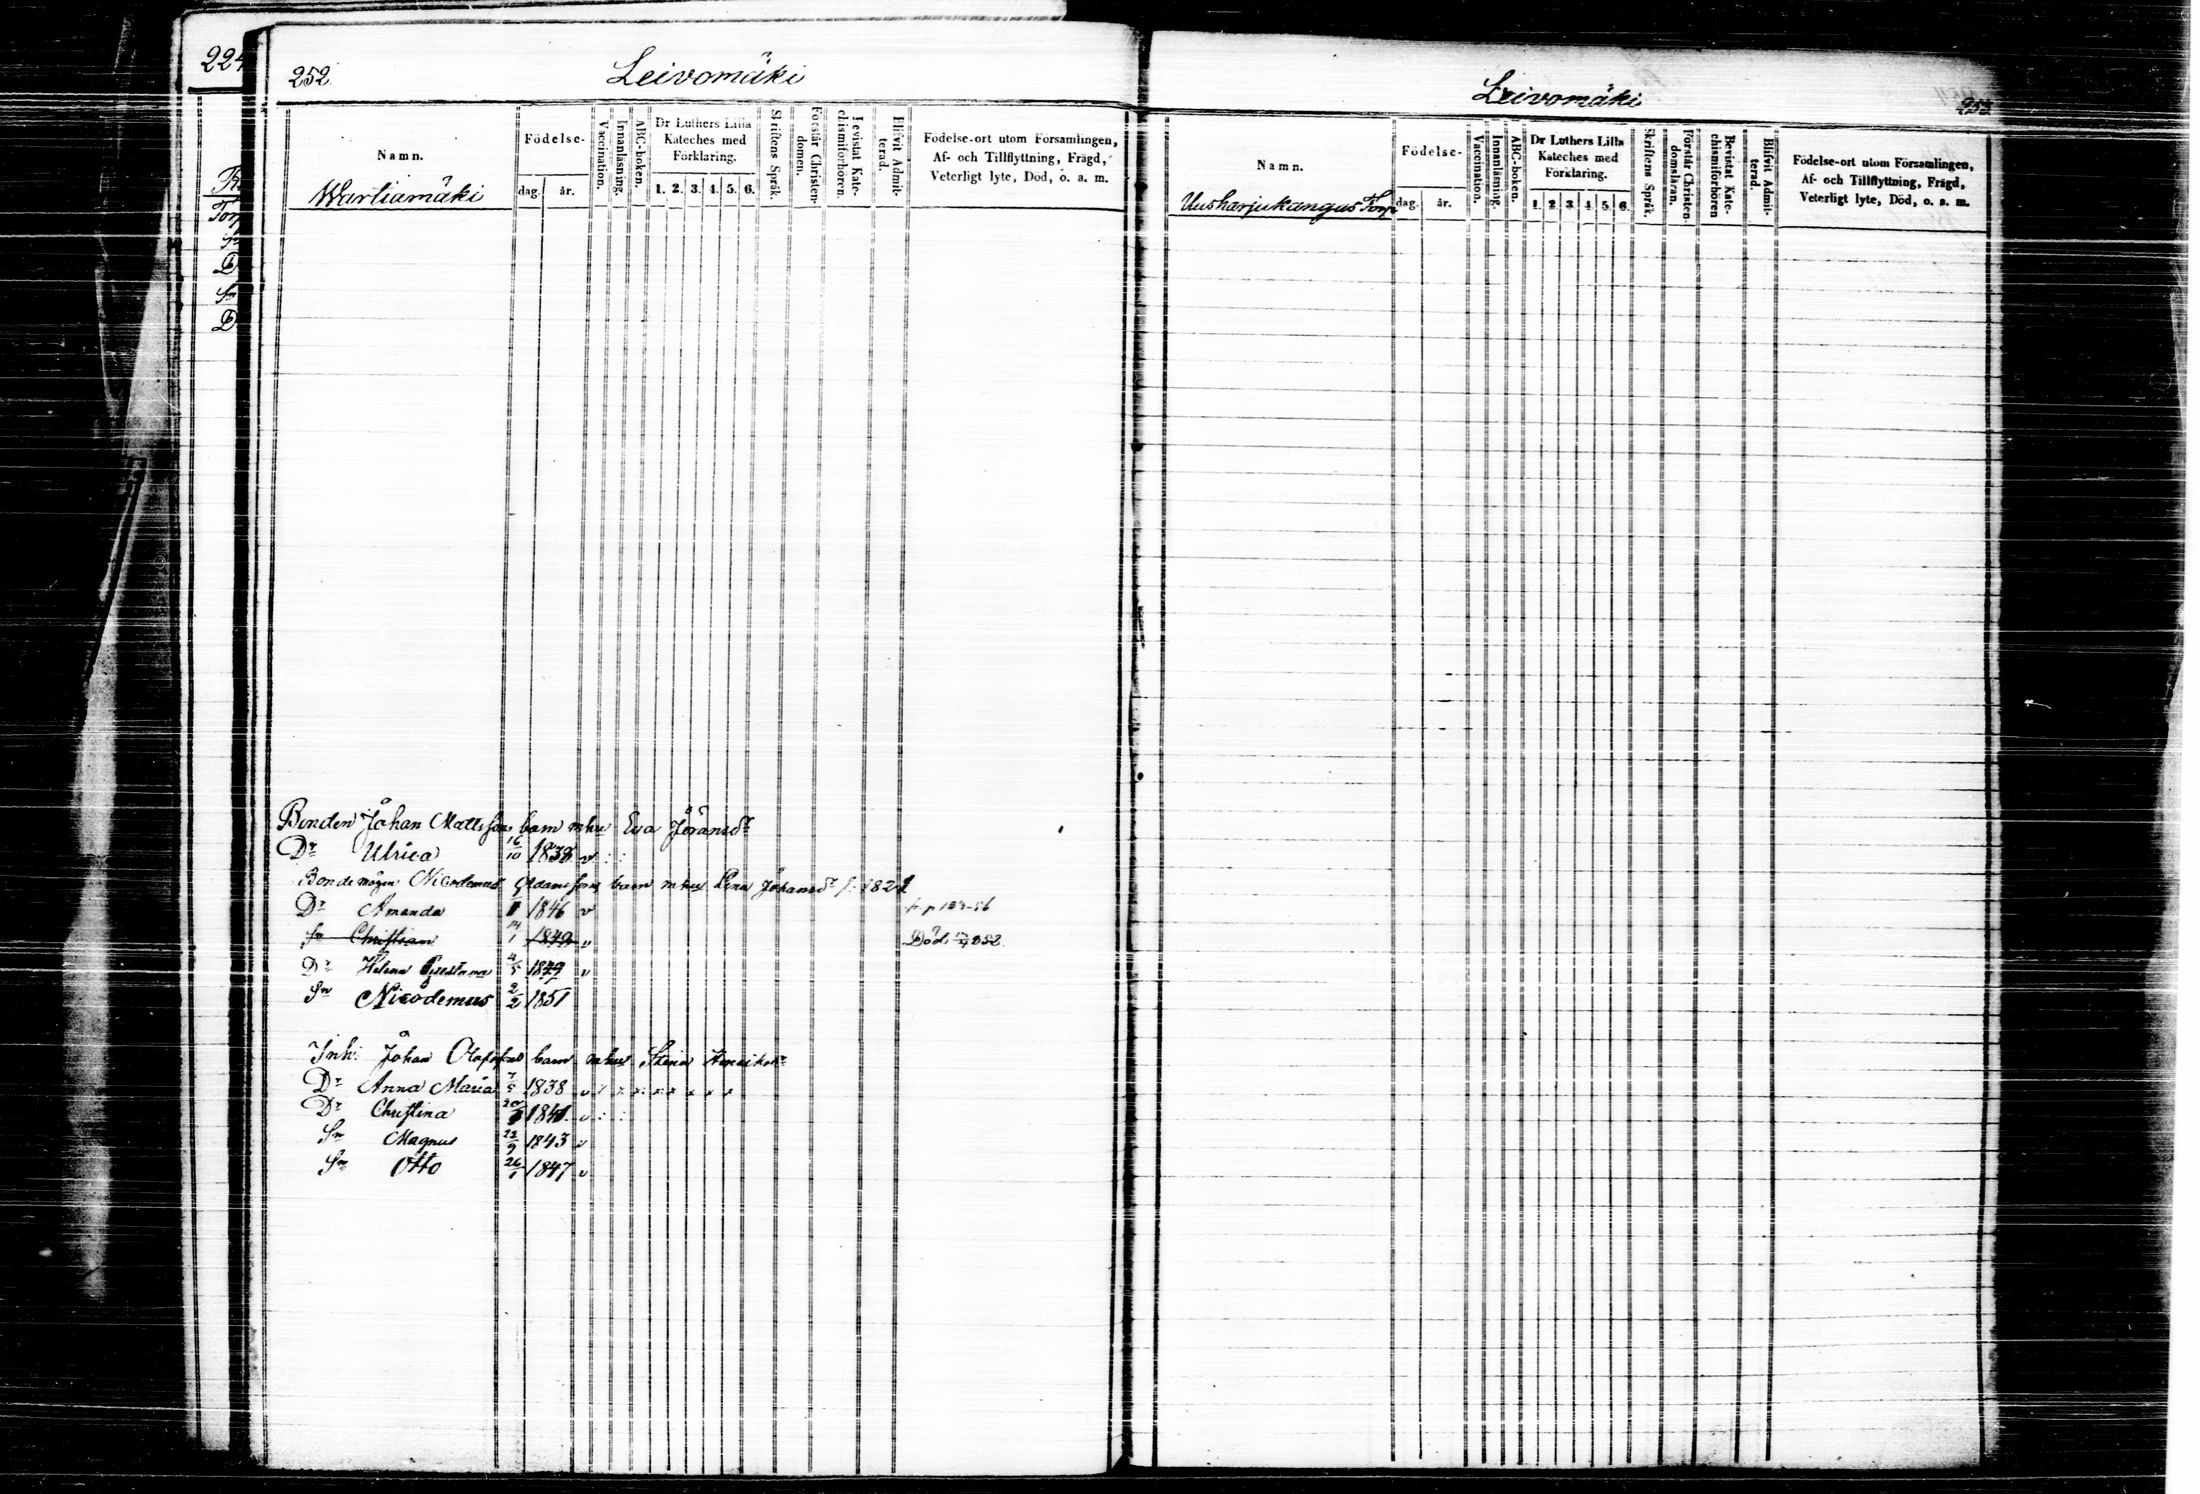 224
252.
Leivomäki
Namn.
Födelse-
dag. år.
Vaccination.
Innanläsning.
ABC-boken.
Dr Luthers Lilla Kateches med Förklaring.
1. 2. 3. 4. 5. 6.
Skriftens Språk.
Förstår Christen-domen.
Bevistat Kate-chismiförhören.
Blifvit Admit-terad.
Födelse-ort utom Församlingen,
Af- och Tillflyttning, Frägd,
Veterligt lyte, Död, o. a. m.
Wartiamäki
Bonden Johan Mattssons barn m hu Eva Jöransdr
Dr Ulrica 16/10 1838 v : :
Bonde mågen Nicodemus Adamssons barn m hus Lena Johansdr f. 1821
Dr Amanda 1846 v
Sn Christian 14/1 1849 v Död
Dr Helena Gustava 4/5 1849 v
Sn Nicodemus 2/2 1851
Inh: Johan Olofssons barn m hus Stina
Dr Anna Maria 7/5 1838 v
Dr Christina 1841. v : :
Sn Magnus 23/9 1843 v
Sn Otto 26/1 1847 v
Leivomäki
253
Namn.
Födelse-
dag. år.
Vaccination.
Innanläsning.
ABC-boken.
Dr Luthers Lilla Kateches med Förklaring.
1. 2. 3. 4. 5. 6.
Skriftens Språk.
Förstår Christen-domsläran.
Bevistat Kate-chismiförhören
Blifvit Admit-terad.
Födelse-ort utom Församlingen,
Af- och Tillflyttning, Frägd,
Veterligt lyte, Död, o. a. m.
Uusharjukangas Torp